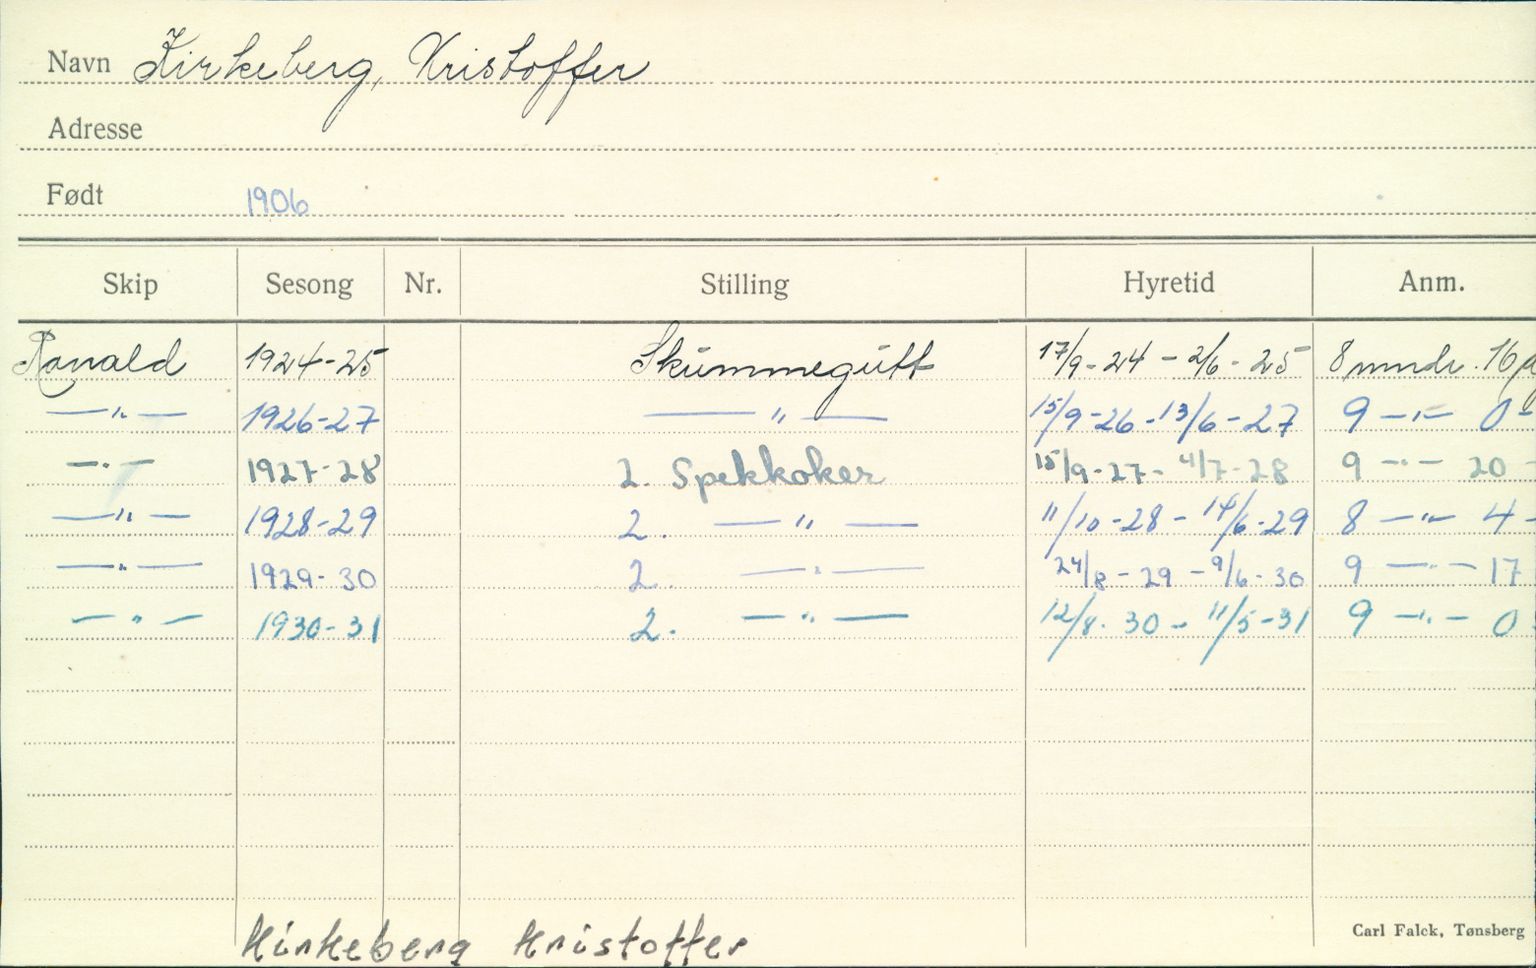 Navn Kirkeberg, Kristoffer
Adresse
Født 1906
Skip Sesong Nr. Stilling Hyretid Anm.
Ronald 1924-25 Skummegutt 17/9-24 - 2/6-25 8 mndr. 16
—"— 1926-27 —"— 15/9-26 - 13/6-27 9 —"— 0 -
—"— 1927-28 2. Spekkoker 15/9-27 - 4/7-28 9 —"— 20 -
—"— 1928-29 2. —"— 11/10-28 - 14/6-29 8 —"— 4 -
—"— 1929-30 2. —"— 24/8-29 - 9/6-30 9 —"— 17
—"— 1930-31 2. —"— 12/8-30 - 11/5-31 9 —"— 0
Carl Falck, Tønsberg
Kirkeberg Kristoffer